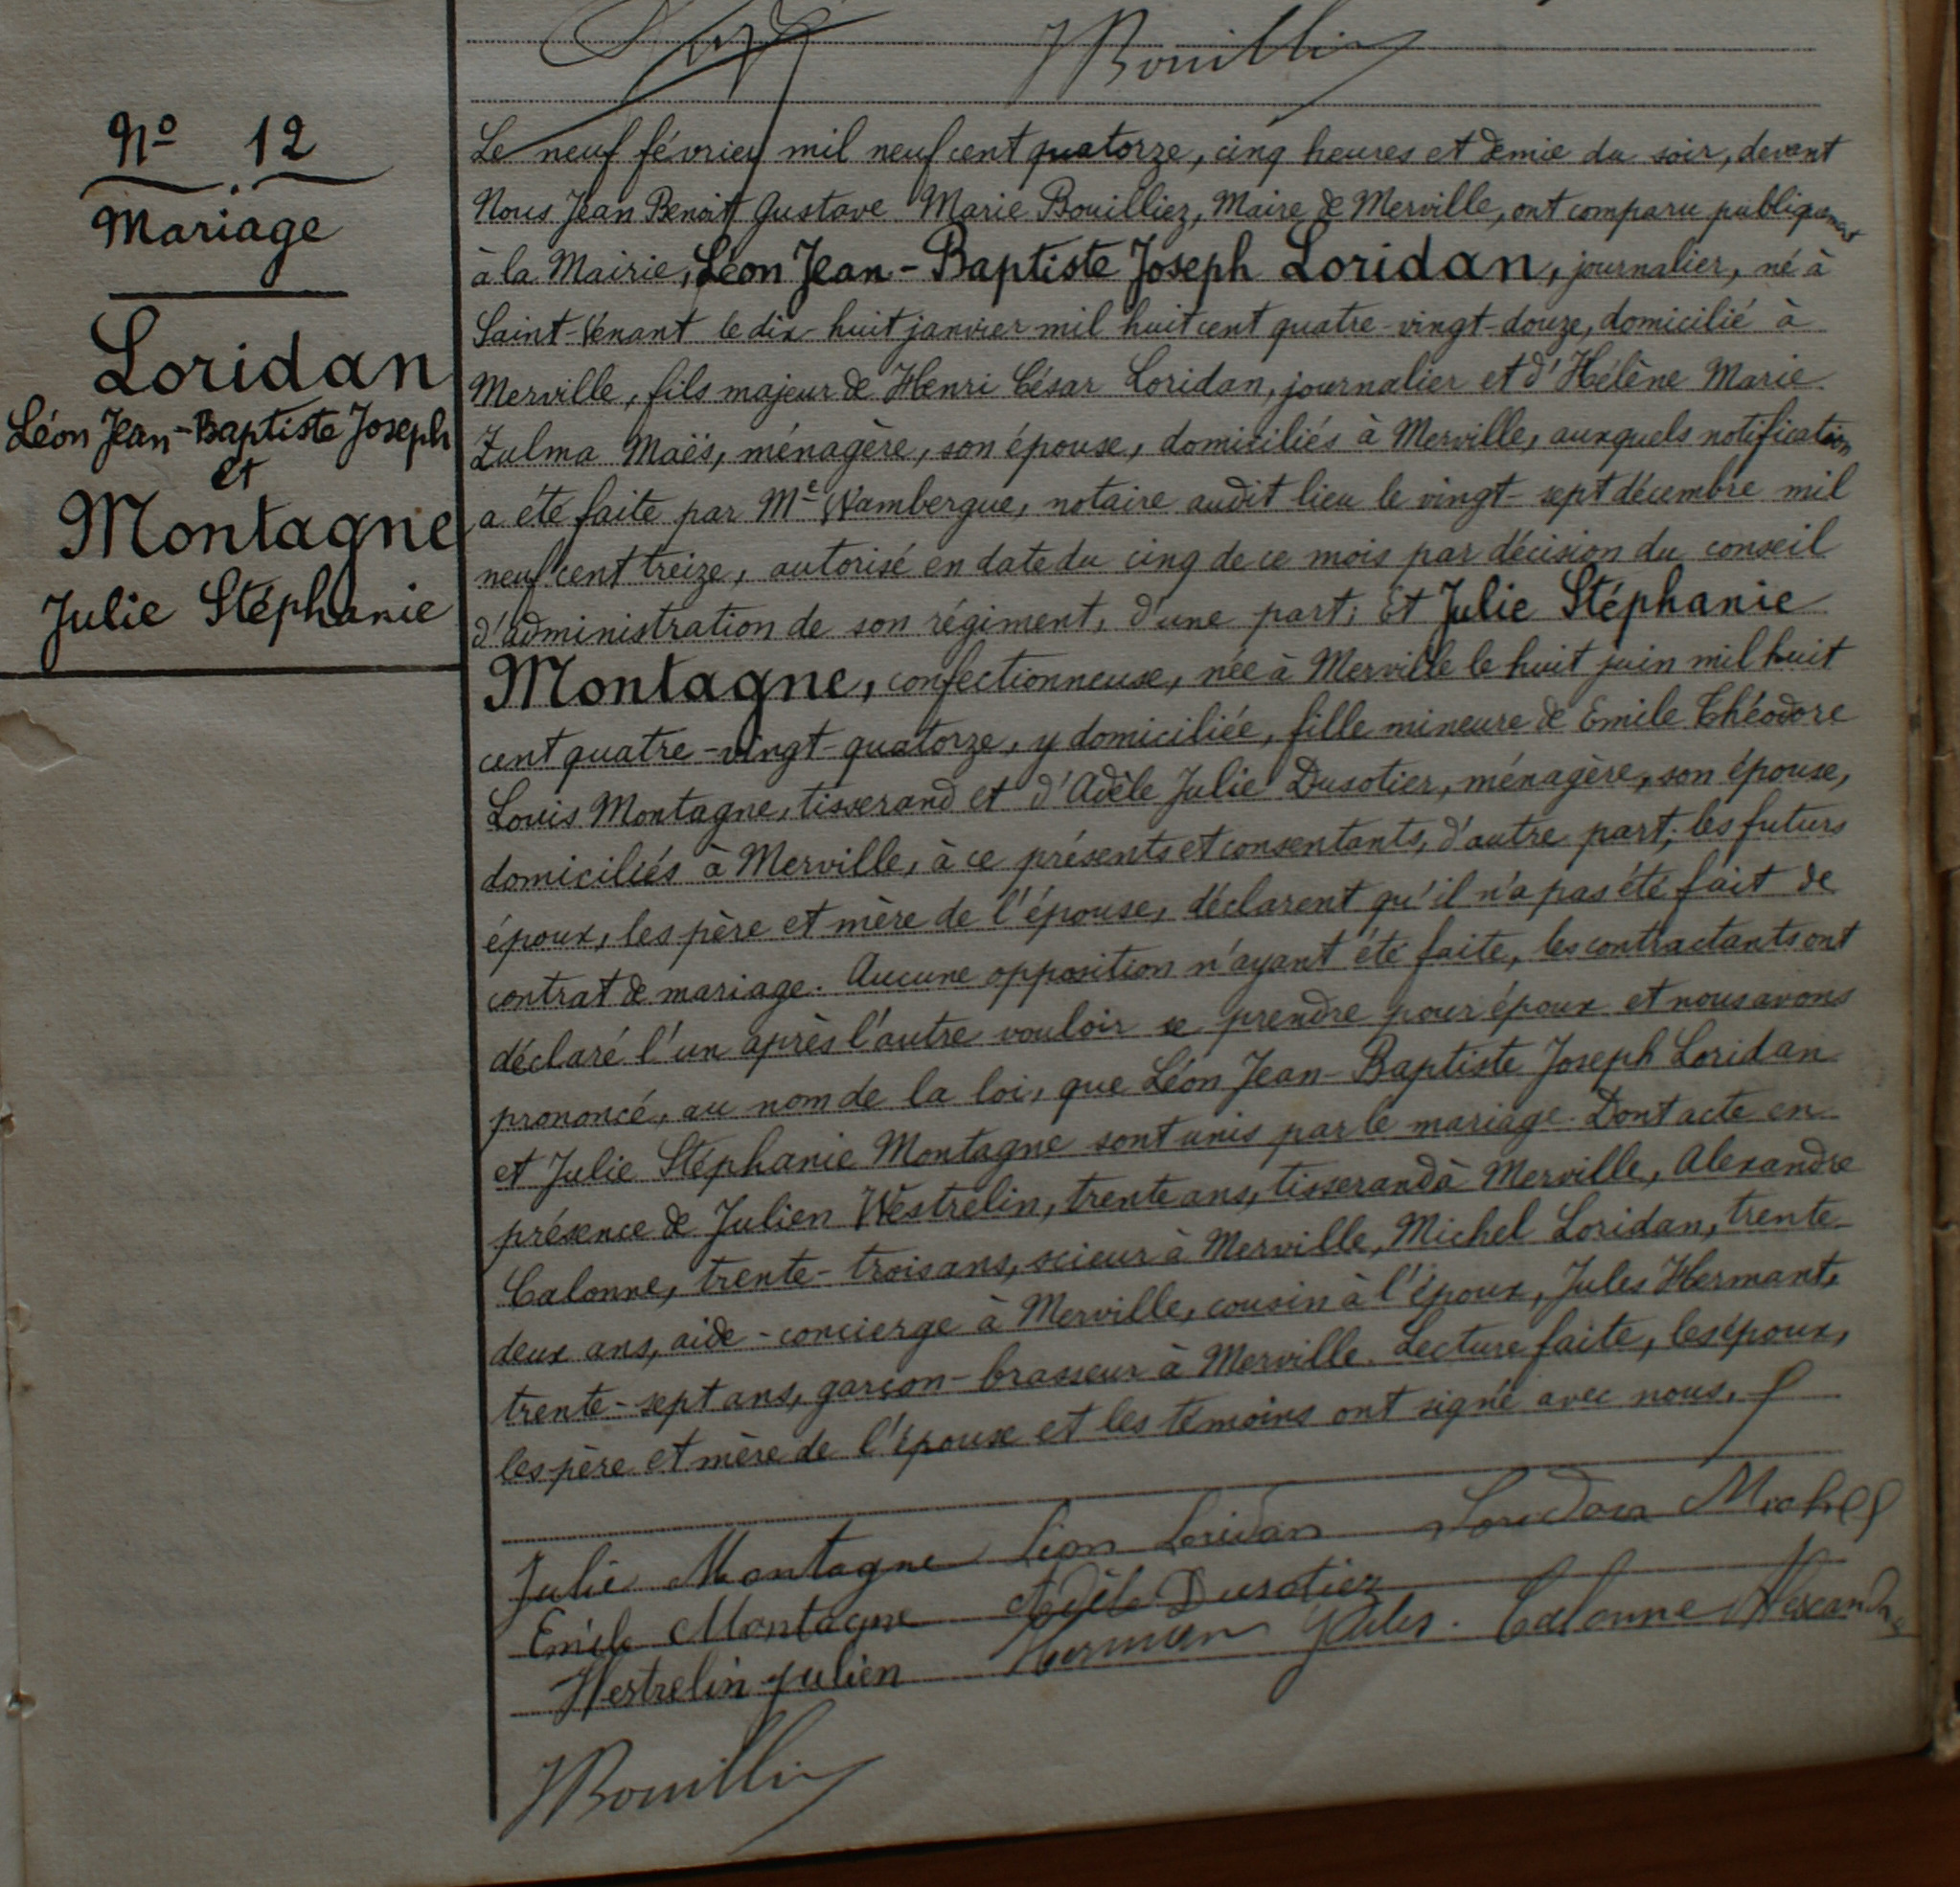 JBouilliez
Nº 12
Mariage
Loridan
Léon Jean-Baptiste Joseph
et
Montagne
Julie Stéphanie
Le neuf février mil neuf cent quatorze, cinq heures et demie du soir, devant
Nous Jean Benoit Gustave Marie Bouilliez, Maire de Merville, ont comparu publiquement
à la Mairie, Léon Jean-Baptiste Joseph Loridan, journalier, né à
Saint-Venant le dix-huit janvier mil huit cent quatre-vingt-douze, domicilié à
Merville, fils majeur de Henri César Loridan, journalier et d'Hélène Marie
Zulma Maës, ménagère, son épouse, domiciliés à Merville, auxquels notification
a été faite par Me Wambergue, notaire audit lieu le vingt-sept décembre mil
neuf cent treize, autorisé en date du cinq de ce mois par décision du conseil
d'administration de son régiment, d'une part; Et Julie Stéphanie
Montagne, confectionneuse, née à Merville le huit juin mil huit
cent quatre-vingt-quatorze, y domiciliée, fille mineure de Emile Théodore
Louis Montagne, tisserand et d'Adèle Julie Dusotier, ménagère, son épouse,
domiciliés à Merville, à ce présents et consentants, d'autre part; les futurs
époux, les père et mère de l'épouse, déclarent qu'il n'a pas été fait de
contrat de mariage. Aucune opposition n'ayant été faite, les contractants ont
déclaré l'un après l'autre vouloir se prendre pour époux et nous avons
prononcé, au nom de la loi, que Léon Jean-Baptiste Joseph Loridan
et Julie Stéphanie Montagne sont unis par le mariage. Dont acte en
présence de Julien Westrelin, trente ans, tisserand à Merville, Alexandre
Calonne, trente-trois ans, scieur à Merville, Michel Loridan, trente-
deux ans, aide-concierge à Merville, cousin à l'époux, Jules Hermant,
trente-sept ans, garçon-brasseur à Merville. Lecture faite, les époux,
les père et mère de l'épouse et les témoins ont signé avec nous.
Julie Montagne Léon Loridan Loridan Michel
Emile Montagne Adèle Dusotiez
Westrelin Julien Herman Jules. Calonne Alexandre
JBouilliez